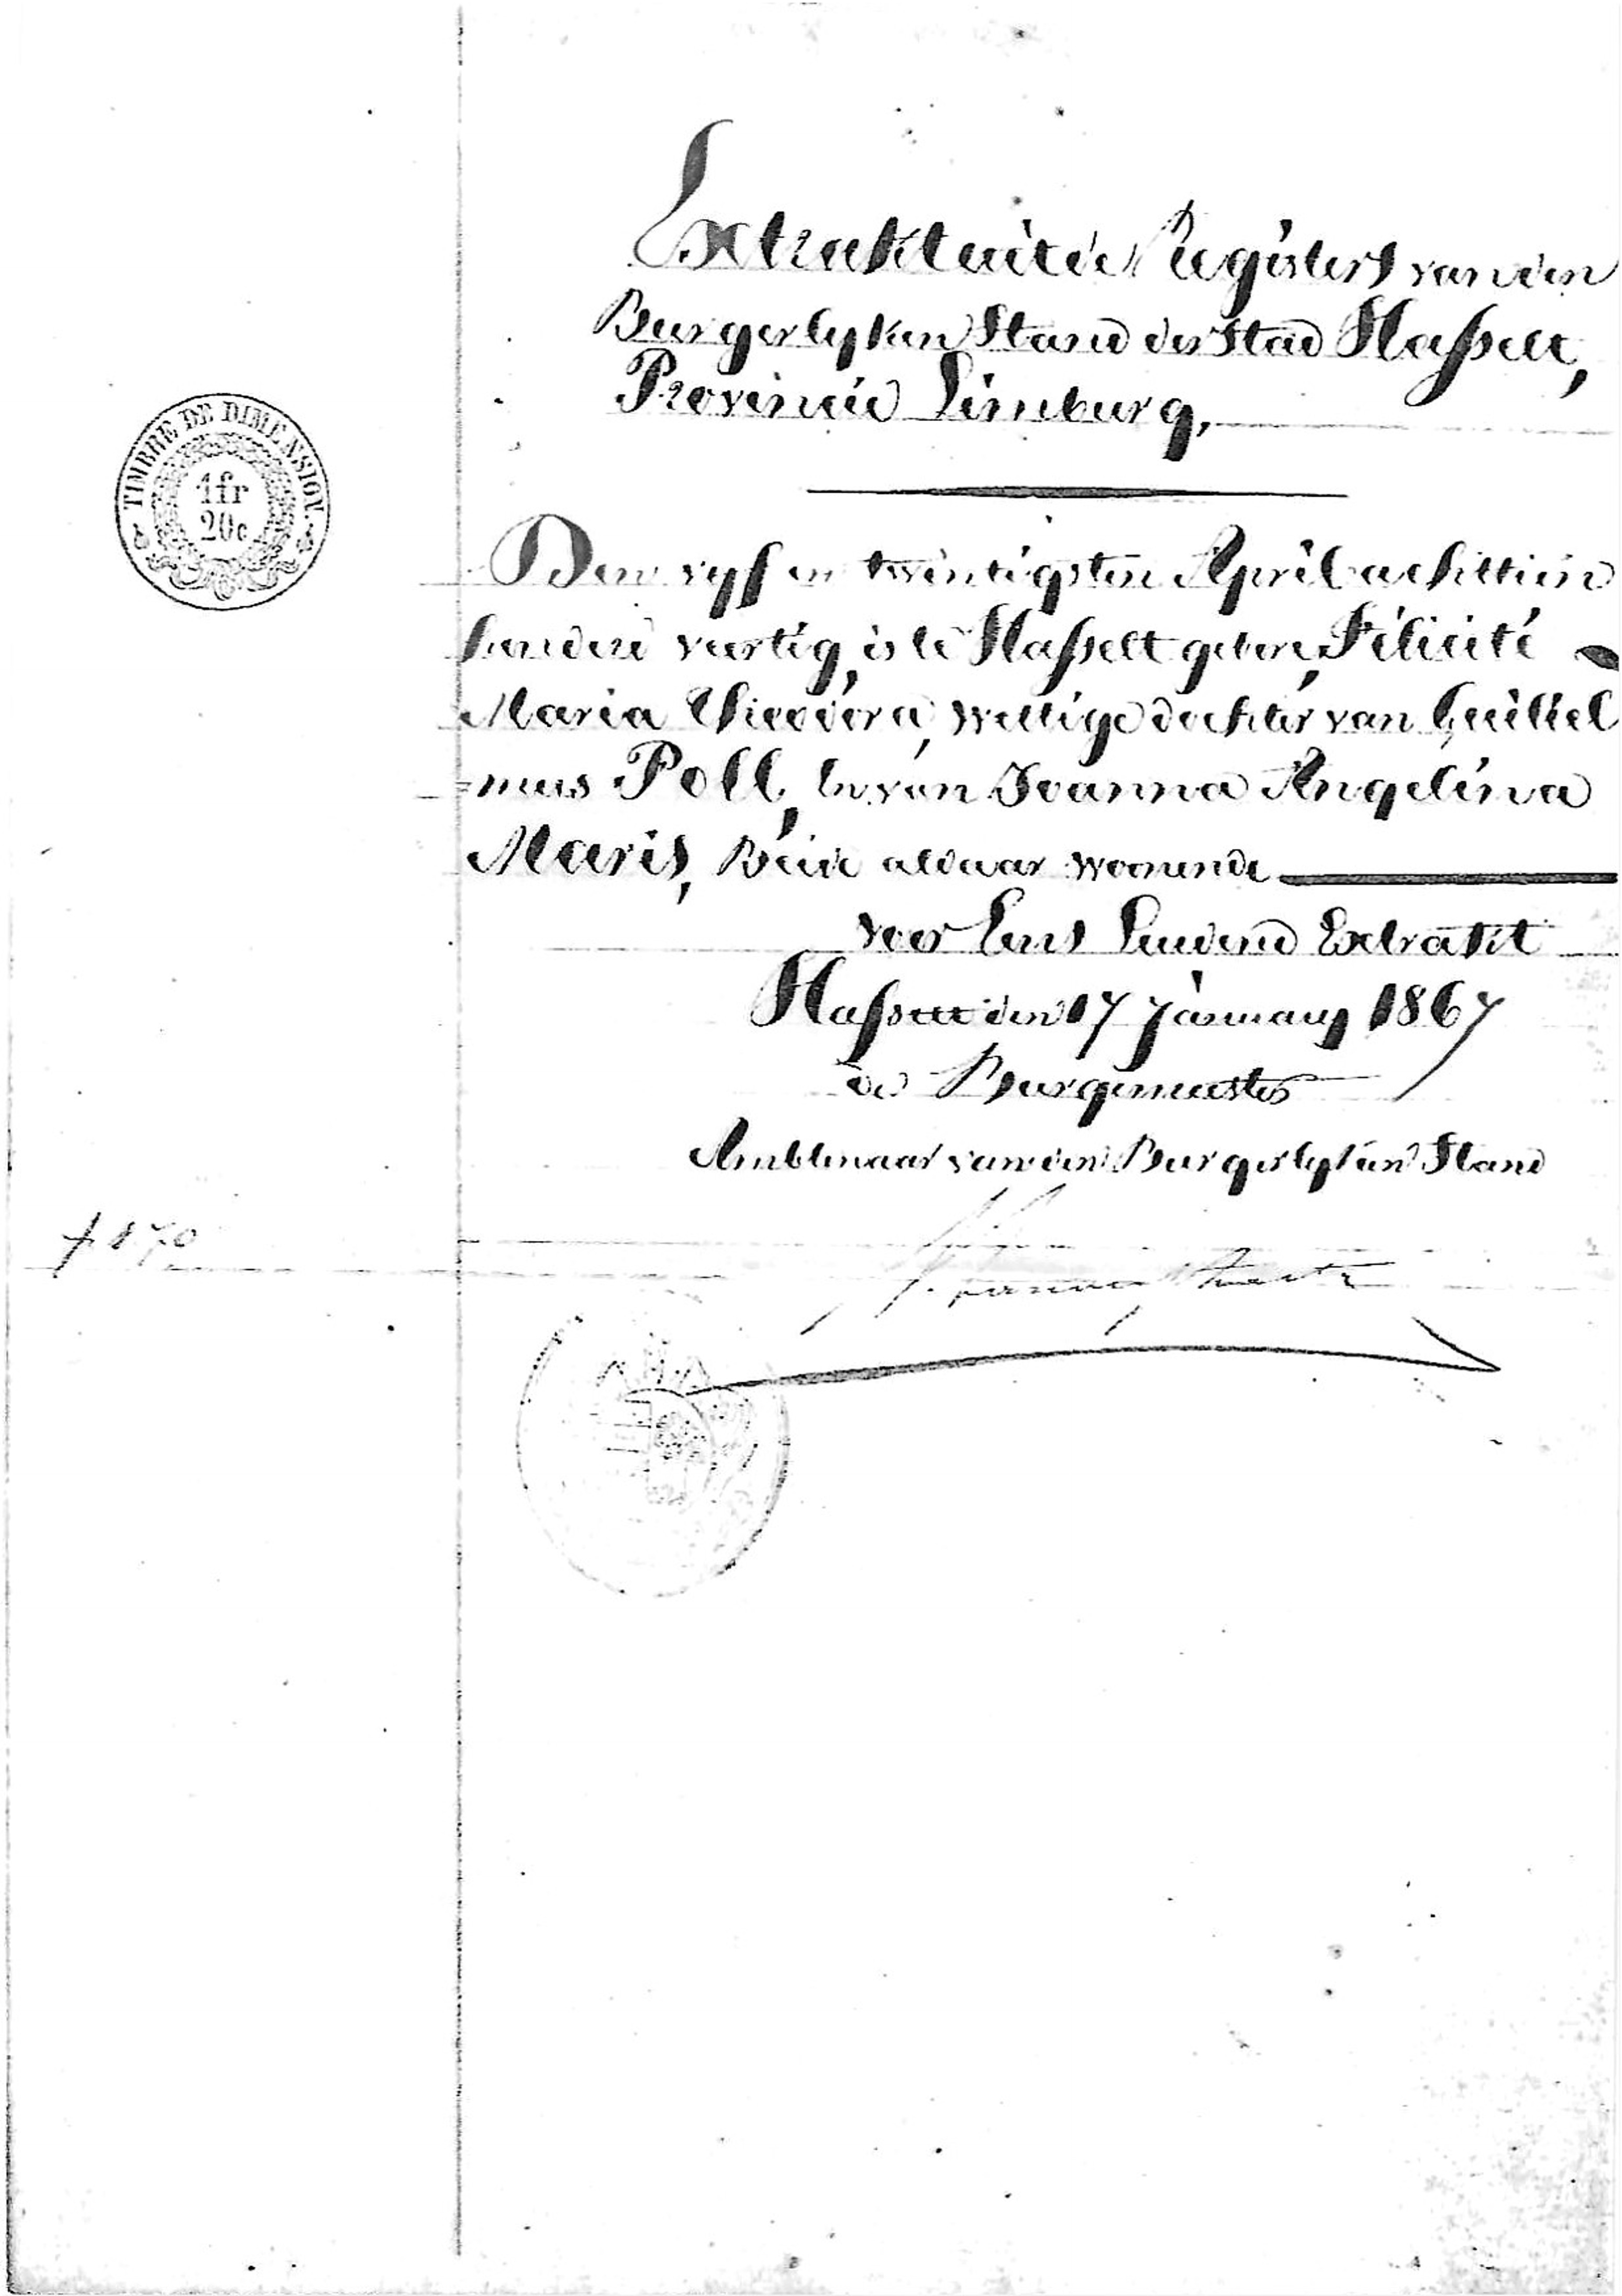 Extrakt uit de Registers van den
Burgerlyken Stand der Stad Hasselt,
Provincie Limburg,
TIMBRE DE DIMENSION.
1fr
20c
Den vyf en twintigsten April achttien
honderd veertig, is te Hasselt geboren, Félicité
Maria Theodora, wettige dochter van Guiliel
=mus Poll, en van Joanna Angelina
Maris, Beide aldaar woonende
voor Eens Luidend Extrakt
Hasselt den 17 January 1867
de Burgemeester
Ambtenaar van den Burgerlyken Stand